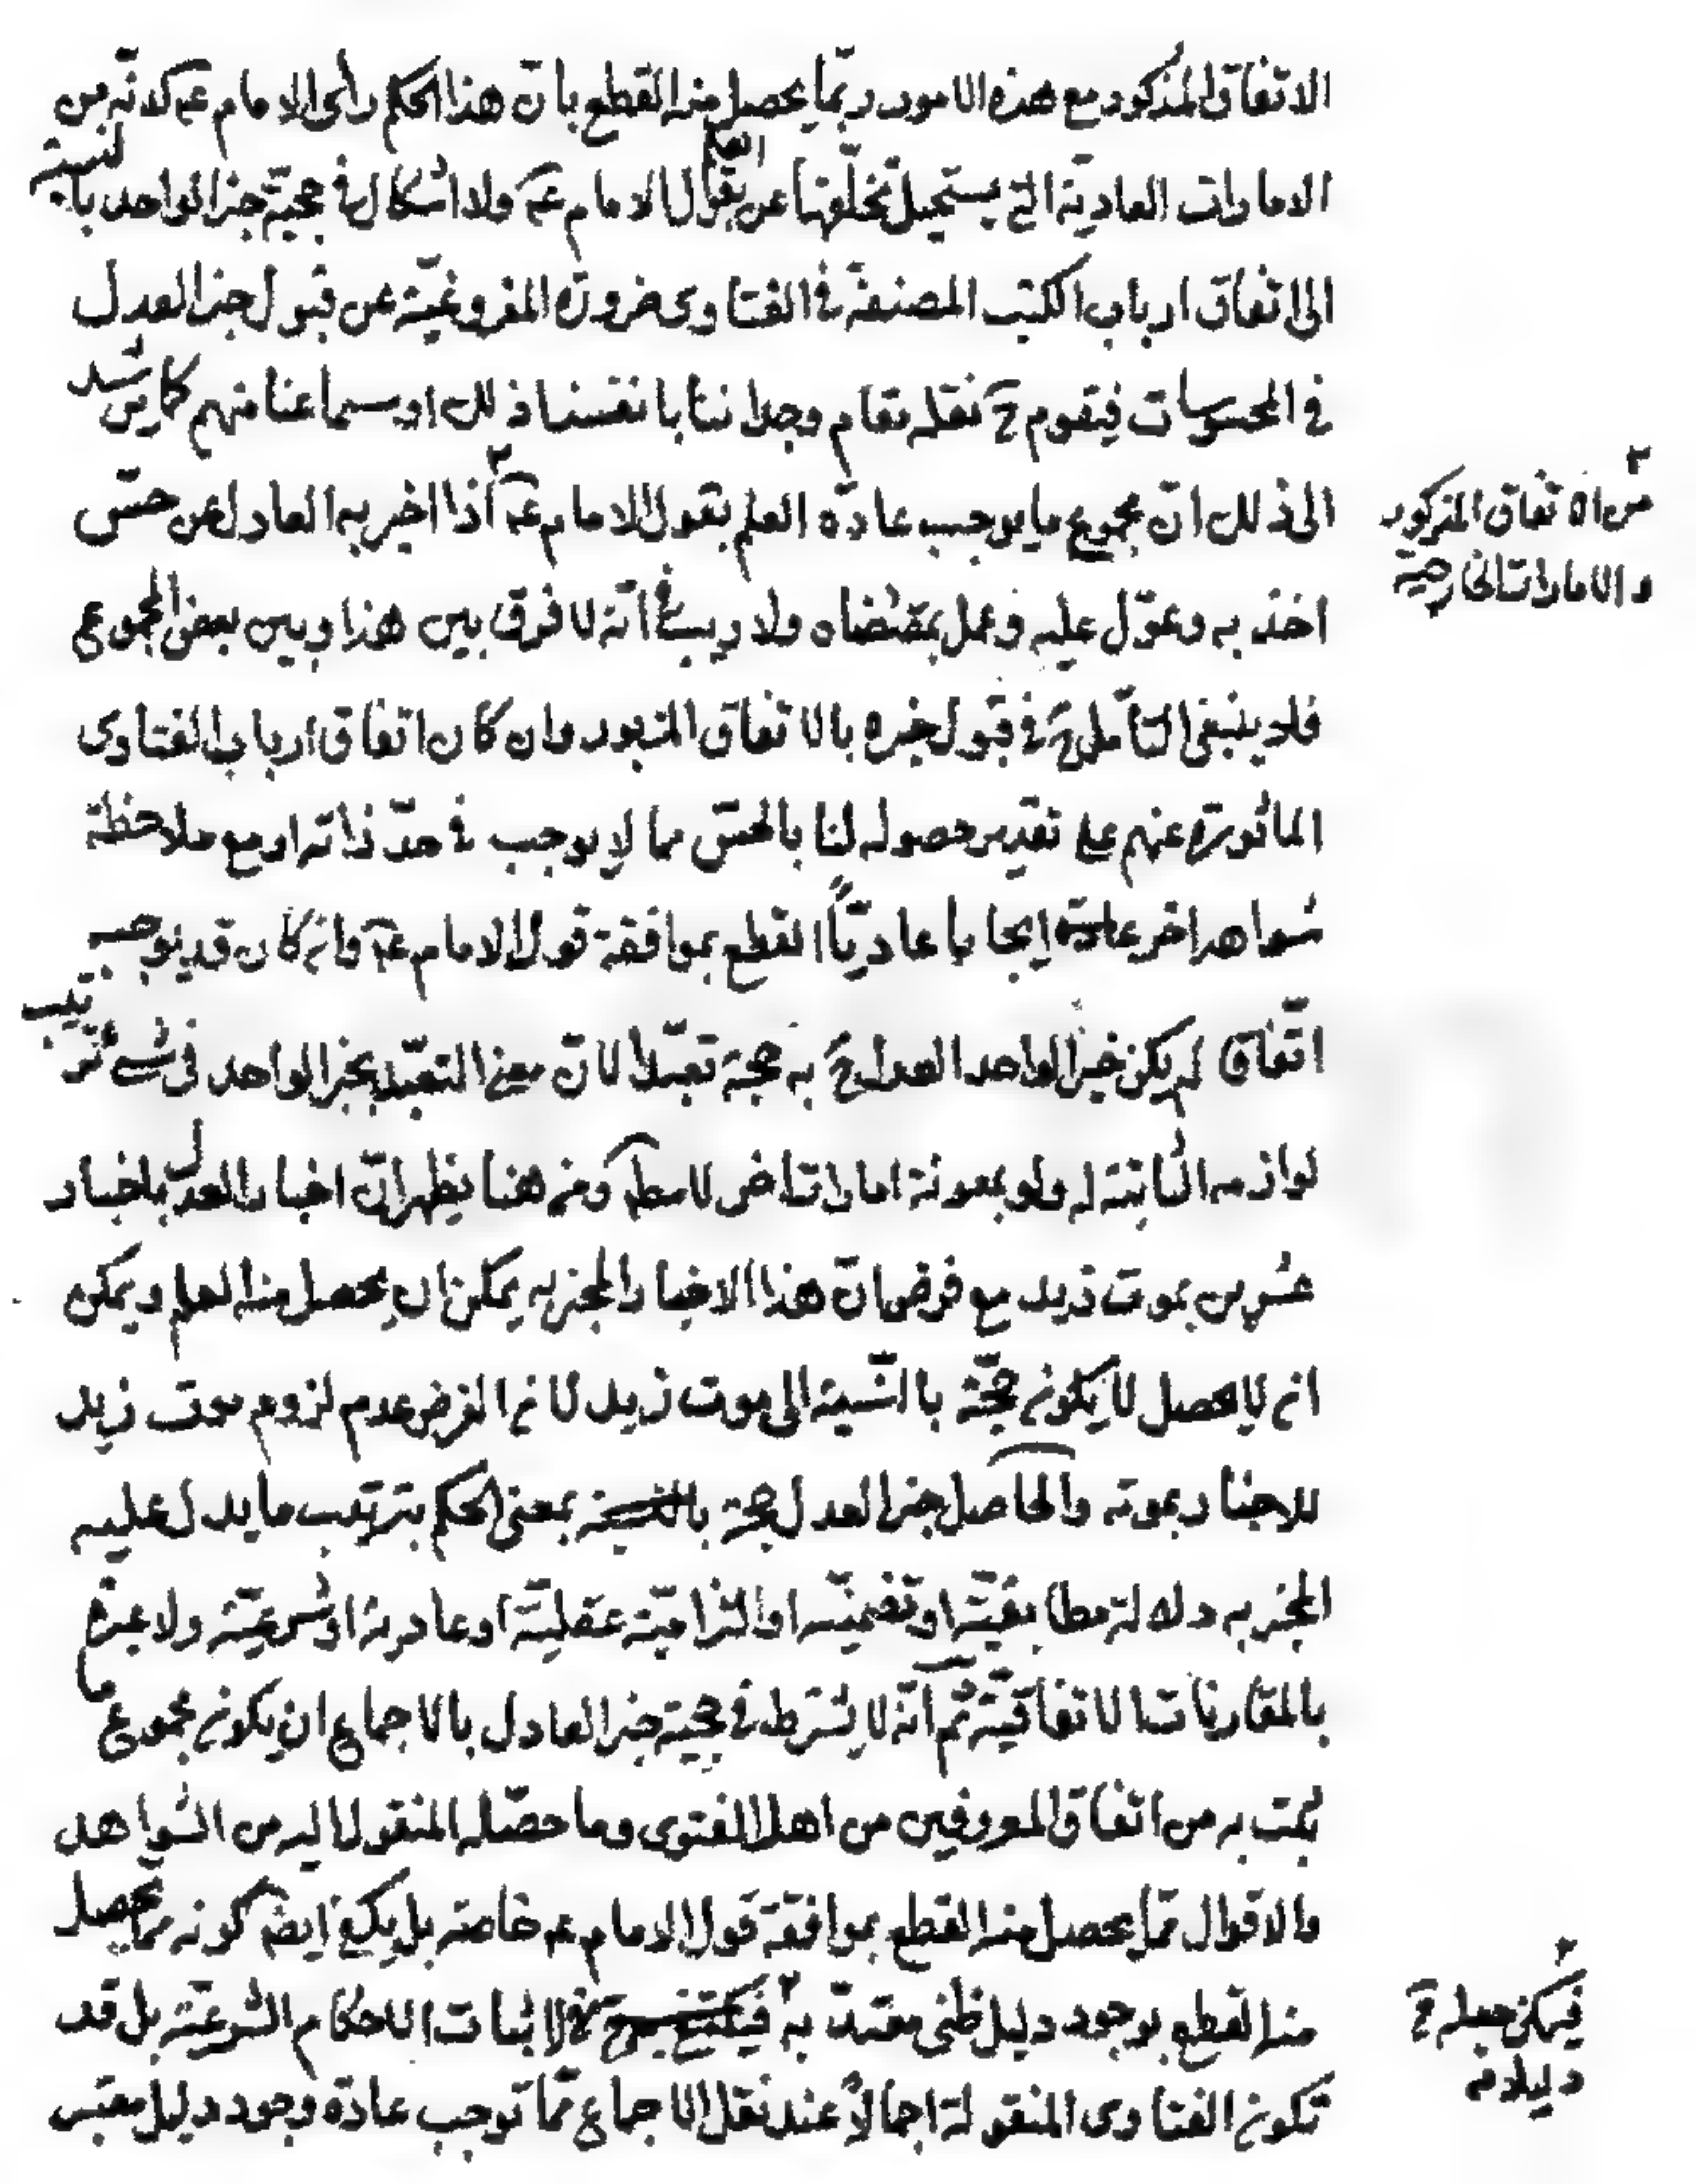 الاتفاق المذكور مع هذه الامور ربّما يحصل منه القطع بانّ هذا الحكم رأى الامام عم لانّه من
الامارات العادية التى يستحيل تخلّفها عن قول الامام عم ولا اشكال فى حجيّة خبر الواحد بالنسبة
الى اتفاق ارباب الكتب المصنفة فى الفتاوى ضرورة المفروغيّة عن قبول خبر العدل
فى المحسوسات فيقوم ح نقله مقام وجداننا بانفسنا ذلك او سماعنا منهم كما يرشد
الى ذلك انّ مجموع ما يوجب عادة العلم بقول الامام عم اذا اخبر به العادل عن حسّ
من الاتفاق المذكور
والامارات الخارجية
اخذ به وعوّل عليه وعمل بمقتضاه ولا ريب فى انّه لا فرق بين هذا وبين بعض المجموع
فلا ينبغى التأمل ح فى قبول خبره بالاتفاق المزبور وان كان اتفاق ارباب الفتاوى
الماثورة عنهم على تقدير حصوله لنا بالحسّ مما لا يوجب فى حدّ ذاته او مع ملاحظة
شواهد اخر ايجابا عاديّاً القطع بموافقة قول الامام عم وان كان قد يوجبه
اتّفاقا لم يكن خبر الواحد العدل ح به حجة تعبّدا لانّ معنى التعبّد بخبر الواحد فى شىء ترتيب
لوازمه الثابتة له ولو بمعونة امارات اخر ومن هنا يظهر انّ اخبار العدل باخبار
عشرين بموت زيد مع فرض انّ هذا الاخبار المخبر به يمكن ان يحصل منه العلم ويمكن
ان لا يحصل لا يكون حجّة بالنّسبة الى موت زيد لان الفرض عدم لزوم موت زيد
للاخبار بموته والحاصل خبر العدل حجة بمعنى الحكم بترتيب ما يدل عليه
المخبر به دلالة مطابقيّة او تضمنيّة او التزاميّة عقليّة او عادية او شرعيّة ولا عبرة
بالمقارنات الاتفاقيّة ثم انّه لا يشترط فى حجية خبر العادل بالاجماع ان يكون مجموع ما
ثبت به من اتفاق المعروفين من اهل الفتوى وما حصّله المنقول اليه من الشواهد
والاقوال ممّا يحصل منه القطع بموافقة قول الامام عم خاصة بل يكفى ايضا كونه ممّا يحصل
منه القطع بوجود دليل ظنى معتدّ به لاثبات الاحكام الشرعيّة بل قد
فيمكن جعله ح
دليلا فى
تكون الفتاوى المنقولة اجمالاً عند نقل الاجماع ممّا توجب عادة وجود دليل معتبر